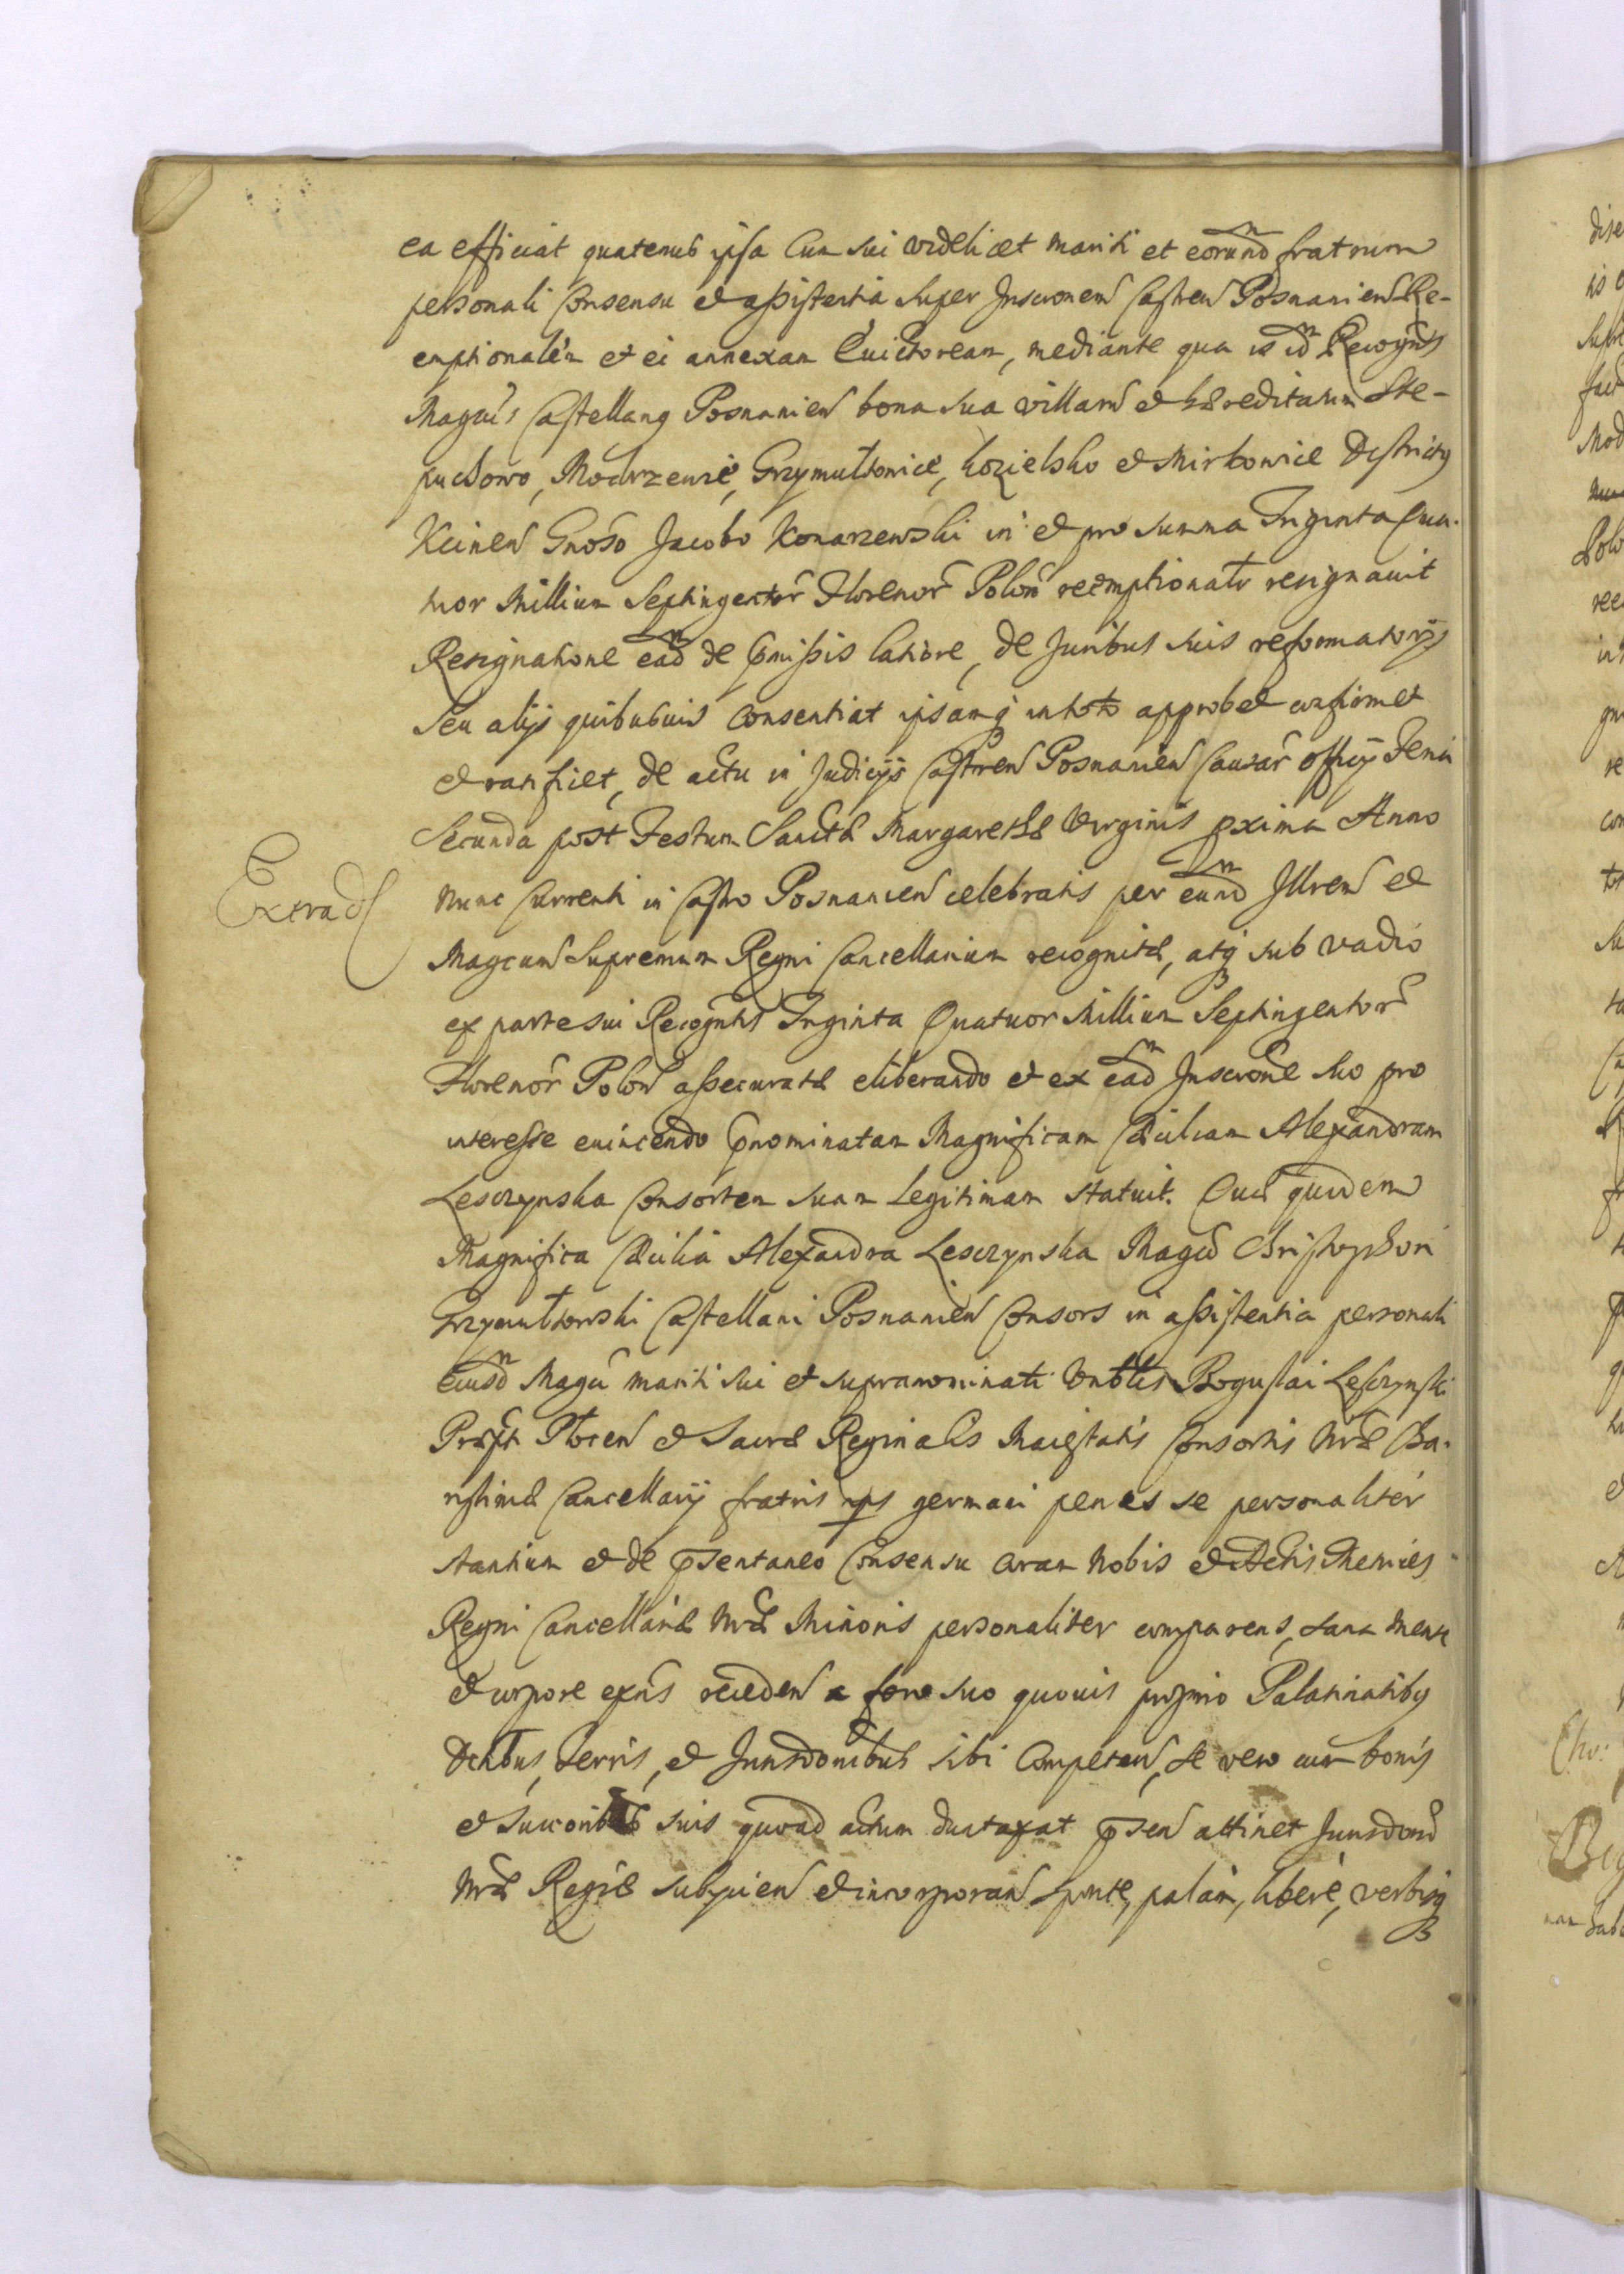 ea efficiat quatenus ipsa cum sui videlicet mariti et eorund fratrum
personali Consensu et assistentia super Inscronem Castren Posnanien Re-
emptionalem et ei annexam Evictoream, mediante qua is id Recogns
Magcus Castellang Posnanien bona sua villarum et hæreditatum Ste-
puchowo, Modrzewie, Grzymułtowice, Kozielsko et Mirkowice Districtg
Kcinen Gnoso Jacobo Konarzewski in et pro summa Triginta Qua-
tuor Millium Septingentor Florenor Polon reemptionalr resignavit
Resignatione ead de præmissis latiore, de Juribus suis reformatorijs
Seu alijs quibusvis consentiat ipsamq in toto approbet confirmet
et ratificet, de actu in Judicijs Castren Posnanien Causar Officij Feria
Secunda post Festum Sanctæ Margarethæ Virginis pxima Anno
Extrad
nunc Currenti in Castro Posnanien celebratis per eund Illrem et
Magcum Supremum Regni Cancellarium recognitæ, atq sub vadio
ex parte sui Recogntis Triginta Quatuor Millium Septingentor
Florenor Polon assecuratæ eliberando et ex ead Inscrone suo pro
interesse evincendo prænominatam Magnificam Cæciliam Alexandram
Lesczynska Consortem suam Legitimam statuit. Quæ quidem
Magnifica Cæcilia Alexandra Lesczynska Magci Christophori
Grzymułtowski Castellani Posnanien Consors in assistentia personali
eiusd Magci mariti sui et supranominati Boguslai Lesczynski
Præpti Plocen et Sacræ Reginalis Maiestatis Consortis Nræ Cha-
rissimæ Cancellarij fratris germani penes se personaliter
stantium et de præsentaneo Consensu coram Nobis et Actis Metrices
Regni Cancellariæ Nræ Minoris personaliter comparens, sana mente
et corpore exns receden a foro suo quovis proprio Palatinatibg
Dctibus, terris, et Jurisdonibus sibi Competen, se vero cum bonis
et Succoribus suis quoad actum duntaxat præsen attinet Jurisdoni
Nræ Regiæ subijcien et incorporan sponte, palam, libere, verbisq